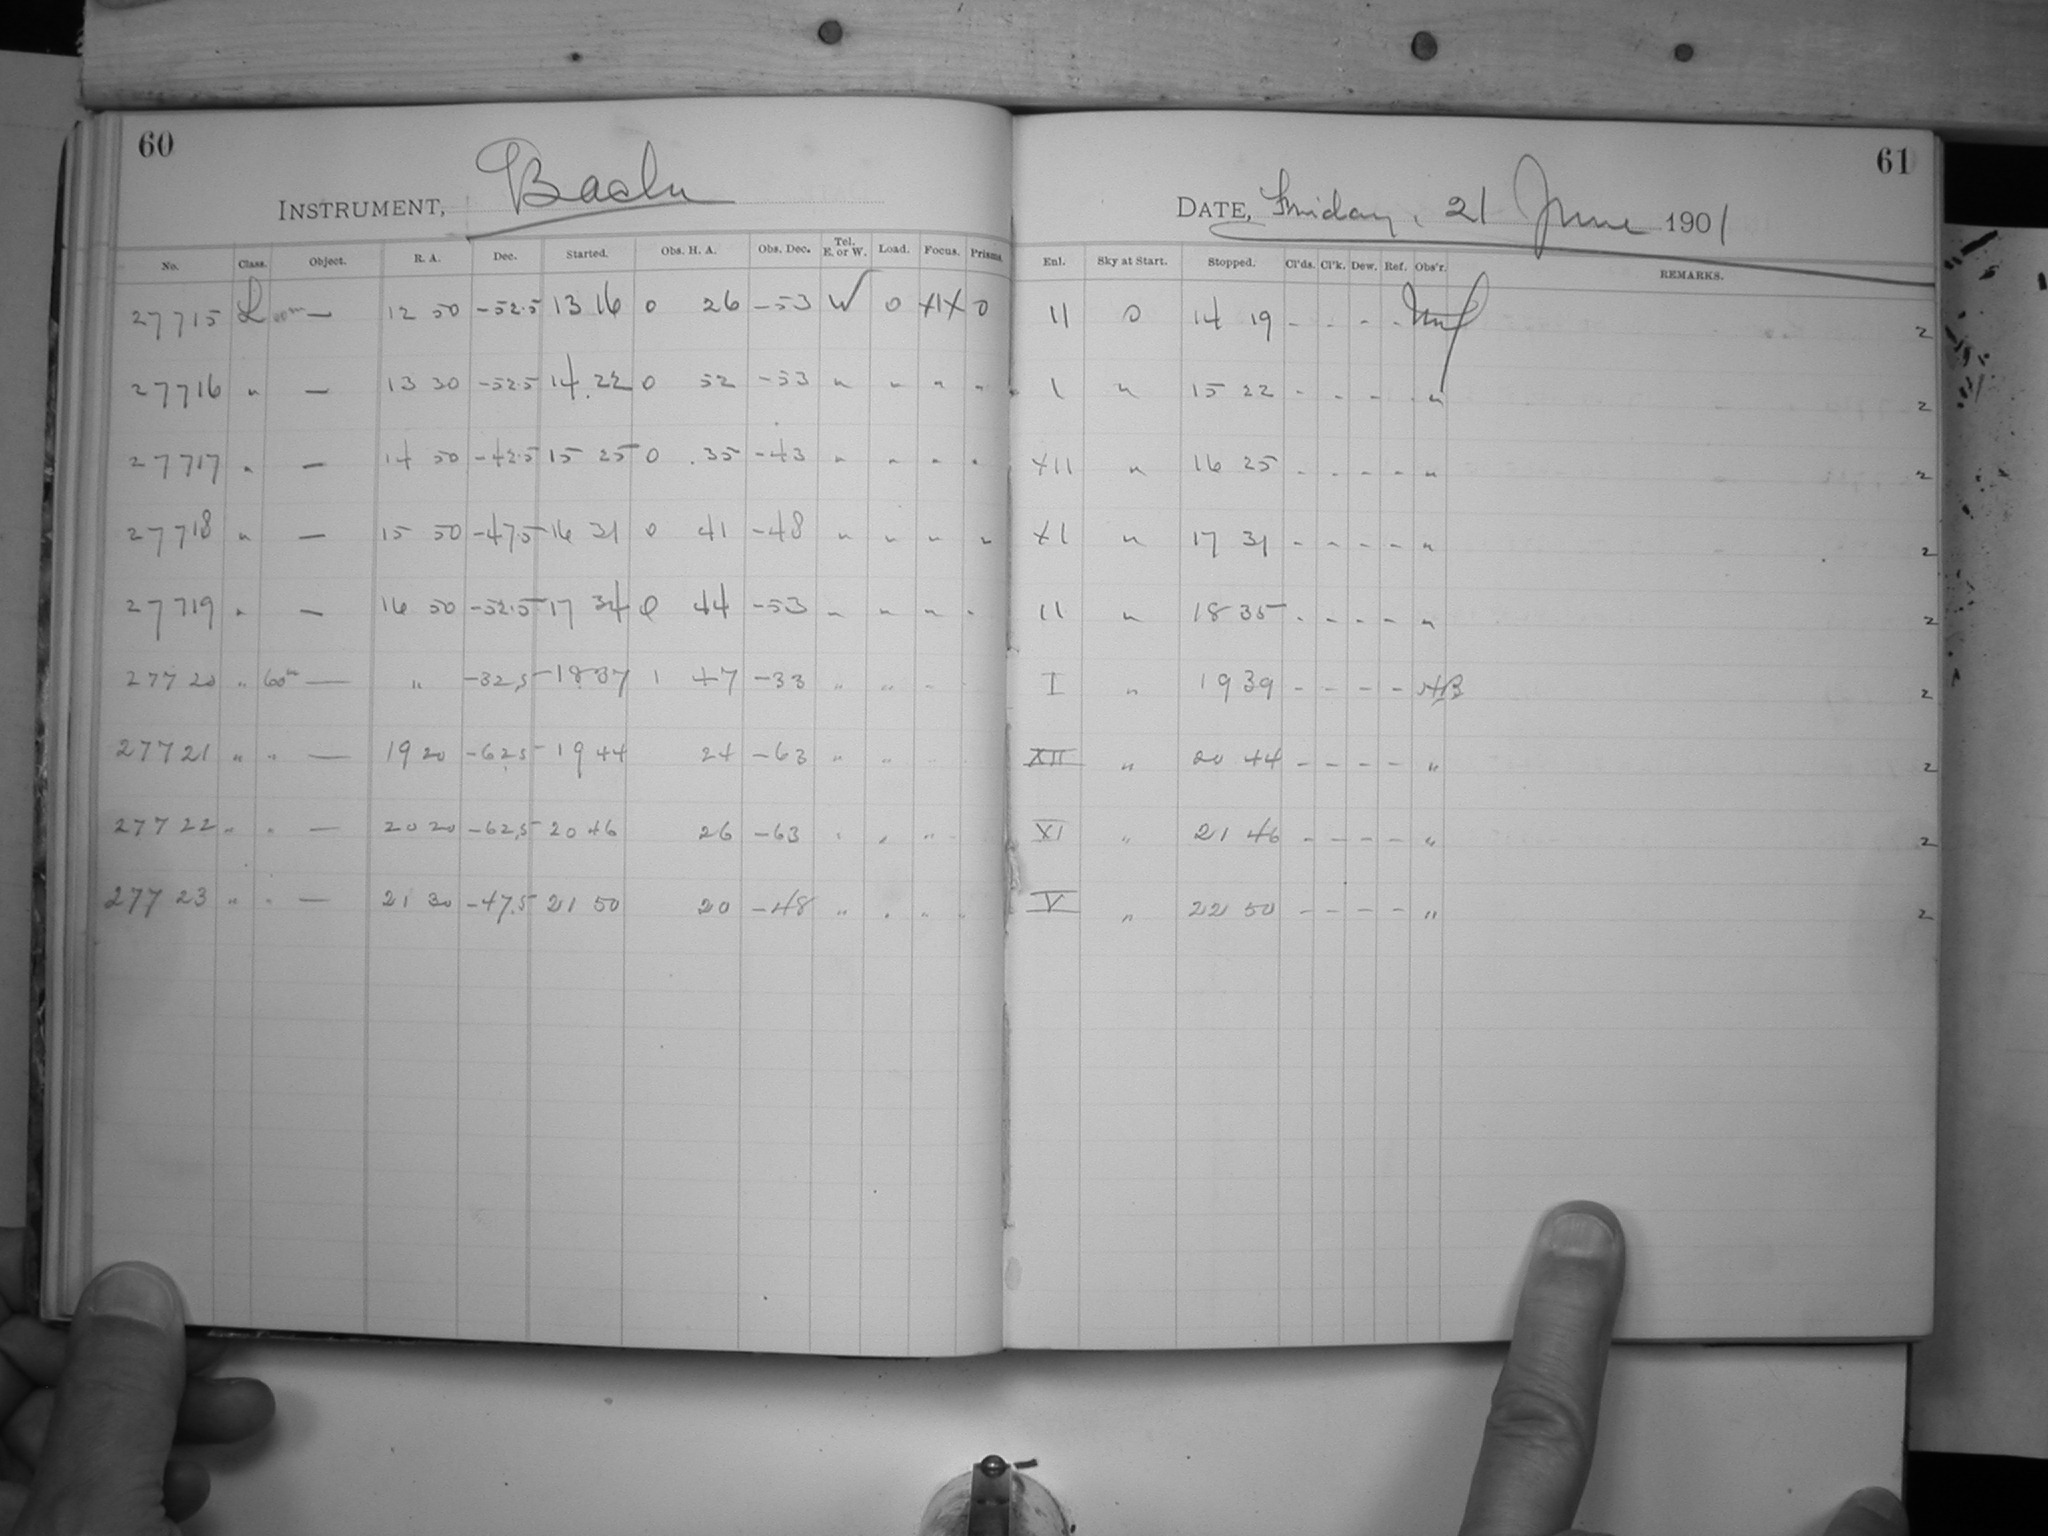 60
INSTRUMENT, Bache
No. Class. Object. R. A. Dec. Started. Obs. H. A. Obs. Dec. Tel. E. or W. Load. Focus. Prisms.
27715 L — 12 50 -52.5 13 16 0 26 -53 W 0 XIX 0
27716 " — 13 30 -52.5 14 22 0 52 -53 " " " "
27717 " — 14 50 -42.5 15 25 0 35 -43 " " " "
27718 " — 15 50 -47.5 16 31 0 41 -48 " " " "
27719 " — 16 50 -52.5 17 34 0 44 -53 " " " "
27720 " 60m — " -32.5 18 37 1 47 -33 " " "
27721 " " — 19 20 -62.5 19 44 24 -63 " "
27722 " " — 20 20 -62.5 20 46 26 -63 " " "
27723 " " — 21 30 -47.5 21 50 20 -48 " " " "
61
DATE, Friday, 21 June 1901
Enl. Sky at Start. Stopped. Cl'ds. Cl'k. Dew. Ref. Obs'r. REMARKS.
II 0 14 19 - - - - 2
I " 15 22 - - - - " 2
XII " 16 25 - - - - " 2
XI " 17 31 - - - - " 2
II " 18 35 - - - - " 2
I " 19 39 - - - - HB 2
XII " 20 44 - - - - " 2
XI " 21 46 - - - - " 2
V " 22 50 - - - - " 2